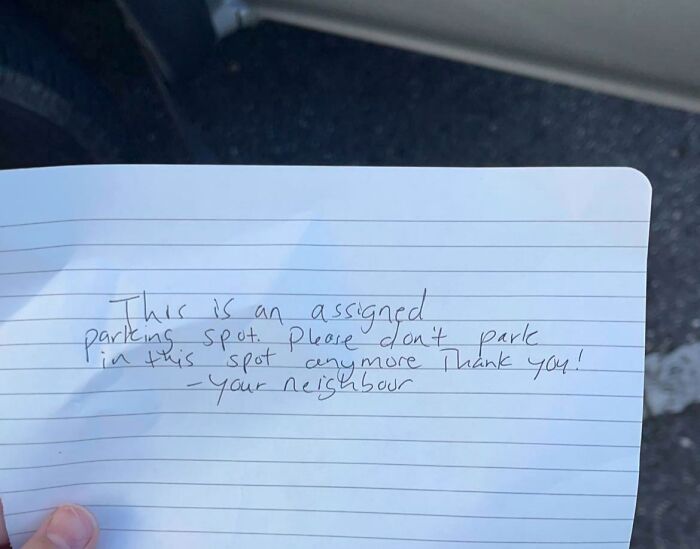 This is an assigned
parking spot. Please don't park
in this spot anymore Thank you!
- your neighbour